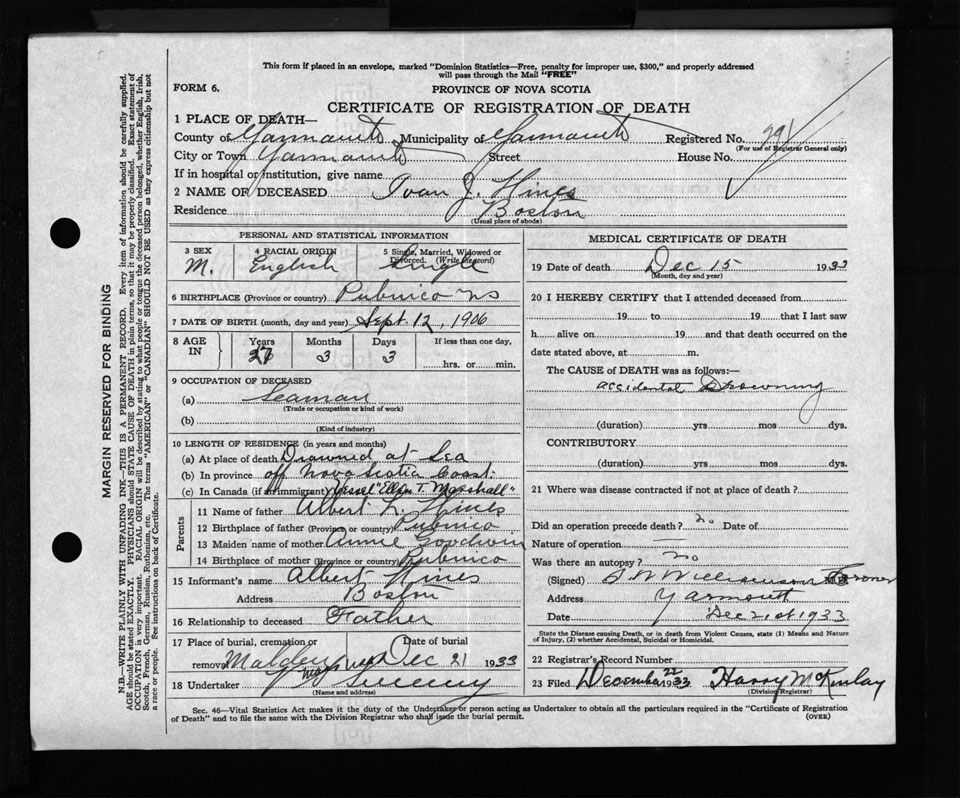 This form if placed in an envelope, marked "Dominion Statistics—Free, penalty for improper use, $300," and properly addressed
will pass through the Mail "FREE"
FORM 6.
PROVINCE OF NOVA SCOTIA
CERTIFICATE OF REGISTRATION OF DEATH
1 PLACE OF DEATH—
County of Yarmouth Municipality of Yarmouth Registered No. 291
(For use of Registrar General only)
City or Town Yarmouth Street House No.
If in hospital or institution, give name
2 NAME OR DECEASED Ivan J. Hines
Residence Boston
(Usual place of abode)
PERSONAL AND STATISTICAL INFORMATION
3 SEX 4 RACIAL ORIGIN 5 Single, Married, Widowed or
Divorced. (Write the word)
M. English Single
6 BIRTHPLACE (Province or country) Pubnico NS
7 DATE OF BIRTH (month, day and year) Sept. 12, 1906
8 AGE IN Years Months Days If less than one day,
27 3 3 hrs. or min.
9 OCCUPATION OF DECEASED
(a) Seaman
(Trade or occupation or kind of work)
(b)
(Kind of industry)
10 LENGTH OF RESIDENCE (in years and months)
(a) At place of death Drowned at Sea
(b) In province off Nova Scotia Coast.
(c) In Canada (if an immigrant) Vessel "Ellen T. Marshall"
Parents
11 Name of father Albert L. Hines
12 Birthplace of father (Province or country) Pubnico
13 Maiden name of mother Annie Goodwin
14 Birthplace of mother (Province or country) Pubnico
15 Informant's name Albert Hines
Address Boston
16 Relationship to deceased Father
17 Place of burial, cremation or Date of burial
removal Malden Mass Dec 21 1933
18 Undertaker Sweeny
(Name and address)
MEDICAL CERTIFICATE OF DEATH
19 Date of death Dec 15 1933
(Month, day and year)
20 I HEREBY CERTIFY that I attended deceased from
19 to 19 that I last saw
h alive on 19 and that death occurred on the
date stated above, at m.
The CAUSE of DEATH was as follows:—
accidental Drowning
(duration) yrs mos dys.
CONTRIBUTORY
(duration) yrs mos dys.
21 Where was disease contracted if not at place of death?
Did an operation precede death? no Date of
Nature of operation —
Was there an autopsy? no
(Signed) Williamson Coroner
Address Yarmouth
Date Dec 21st 1933
State the Disease causing Death, or in death from Violent Causes, state (1) Means and Nature
of Injury, (2) whether Accidental, Suicidal or Homicidal.
22 Registrar's Record Number
23 Filed December 22 1933 Harry McKinlay
(Division Registrar)
Sec. 46—Vital Statistics Act makes it the duty of the Undertaker or person acting as Undertaker to obtain all the particulars required in the "Certificate of Registration
of Death" and to file the same with the Division Registrar who shall issue the burial permit. (OVER)
MARGIN RESERVED FOR BINDING
N.B.—WRITE PLAINLY WITH UNFADING INK—THIS IS A PERMANENT RECORD. Every item of information should be carefully supplied.
AGE should be stated EXACTLY. PHYSICIANS should STATE CAUSE OF DEATH in plain terms, so that it may be properly classified. Exact statement of
OCCUPATION is very important. RACIAL ORIGIN will be described by stating to what people or tongue the deceased person belonged, whether English, Irish,
Scotch, French, German, Russian, Ruthenian, etc. The terms "AMERICAN" or "CANADIAN" SHOULD NOT BE USED as they express citizenship but not
a race or people. See instructions on back of Certificate.